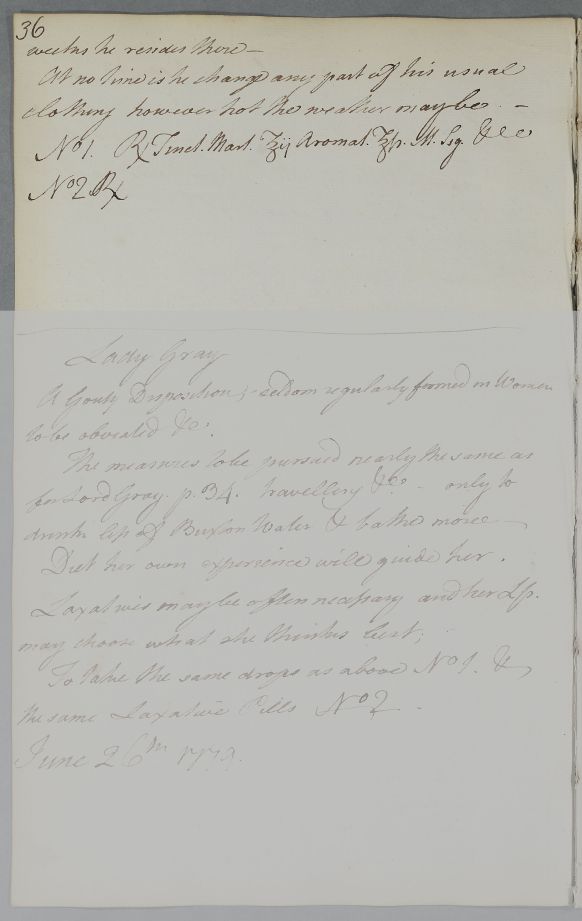 36
weeks he resides there —
At no time is he change any part of his usual
clothing however hot the weather may be. —
No 1. ℞ Tinct. Mart. ʒij Aromat. ʒſs. M. Sig. &c
No 2 ℞
Lady Gray
A Gouty Disposition, seldom regularly formed in Women
to be obviated &c.
The measures to be pursued nearly the same as
for Lord Gray. p. 34. travelling &c - only to
drink less of Buxton Water & bathe more —
Diet her own experience will guide her.
Laxatives may be often necessary and her Lp.
may choose what she thinks best;
To take the same drops as above No 1. &
the same Laxative Pills No 2.
June 26th